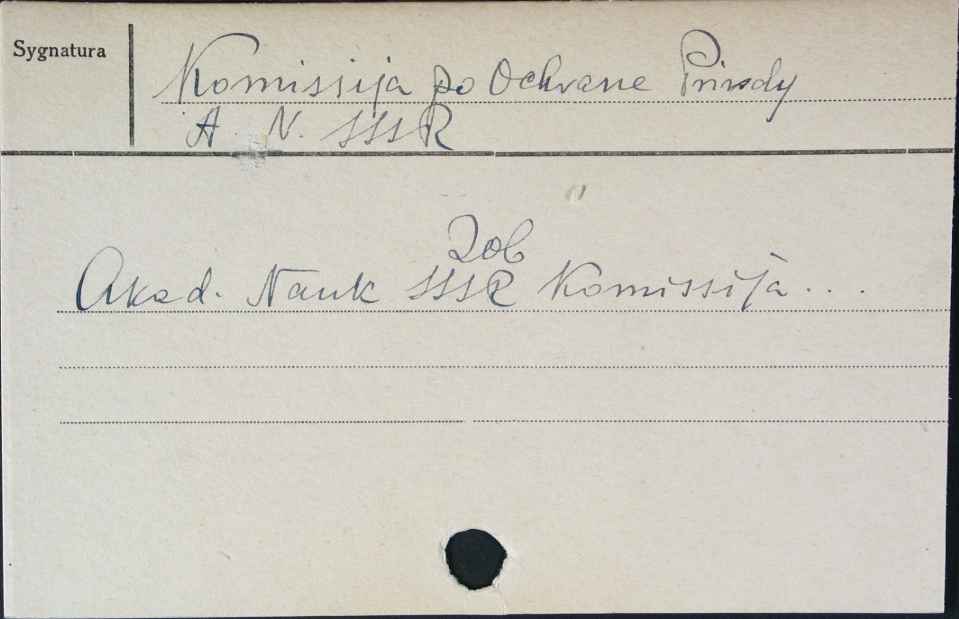 Sygnatura
Komissija po Ochrane Prirody
A. N. SSSR
Zob
Akad. Nauk SSSR Komissija...